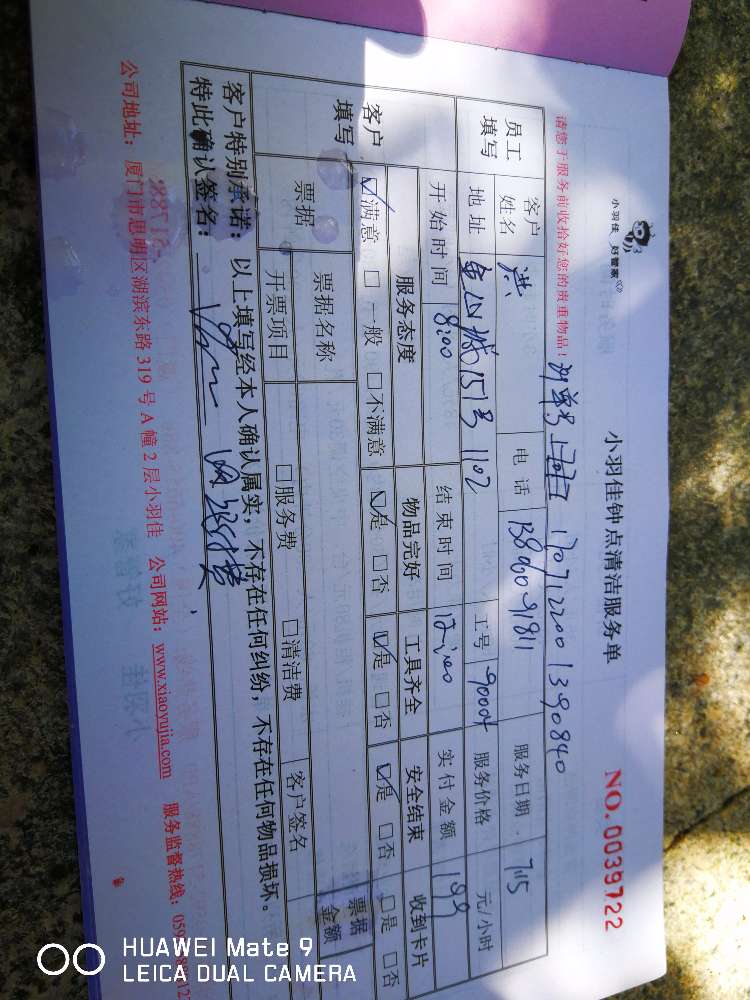 小羽佳 好管家
小羽佳钟点清洁服务单
NO. 0039722
请您于服务前收拾好您的贵重物品!
1707122001390840
员工填写
客户姓名 洪 电话 服务日期 7.15
地址 金山 151号 1102 工号 90004 服务价格 元/小时
开始时间 8:00 结束时间 12:00 实付金额 199
客户填写
服务态度 物品完好 工具齐全 安全结束 收到卡片
☑满意 □一般 □不满意 ☑是 □否 ☑是 □否 ☑是 □否 □是 □否
票据
票据名称 客户签名 票据金额
开票项目 □服务费 □清洁费
客户特别承诺:以上填写经本人确认属实,不存在任何纠纷,不存在任何物品损坏。
特此确认签名:
公司地址:厦门市思明区湖滨东路319号A幢2层小羽佳 公司网站:www.xiaoyujia.com 服务监督热线:
HUAWEI Mate 9
LEICA DUAL CAMERA